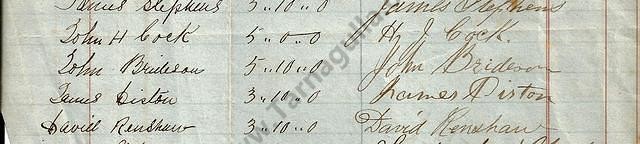 James Stephens 5..10..0 James Stephens
John H Cock 5..0..0 H J Cock.
John Brideson 5..10..0 John Brideson
James Diston 3..10..0 James Diston
David Renshaw 3..10..0 David Renshaw